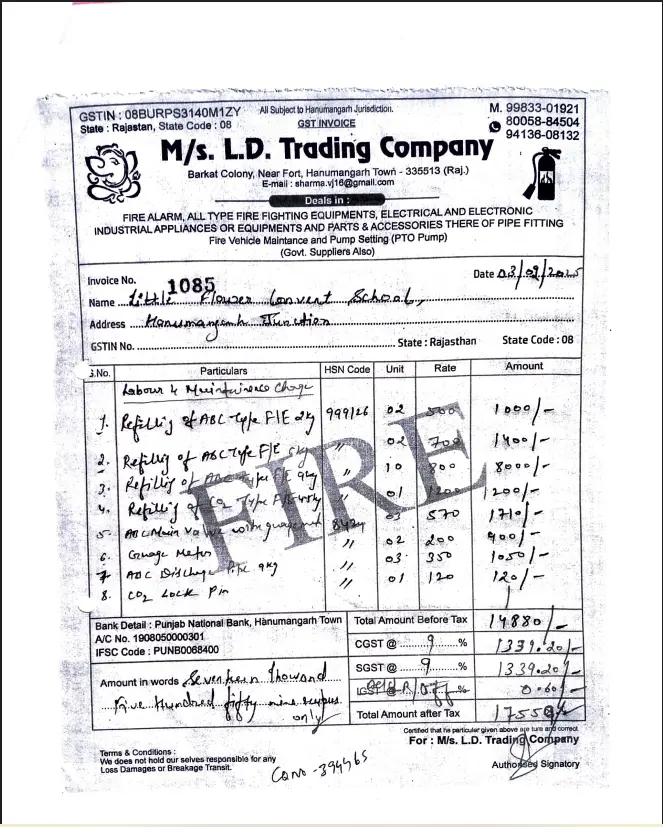 GSTIN : 08BURPS3140M1ZY
All Subject to Hanumangarh Jurisdiction.
M. 99833-01921
State : Rajastan, State Code : 08
GST INVOICE
80058-84504
94136-08132
M/s. L.D. Trading Company
Barkat Colony, Near Fort, Hanumangarh Town - 335513 (Raj.)
E-mail : sharma.vj16@gmail.com
Deals in :
FIRE ALARM, ALL TYPE FIRE FIGHTING EQUIPMENTS, ELECTRICAL AND ELECTRONIC
INDUSTRIAL APPLIANCES OR EQUIPMENTS AND PARTS & ACCESSORIES THERE OF PIPE FITTING
Fire Vehicle Maintance and Pump Setting (PTO Pump)
(Govt. Suppliers Also)
Invoice No. 1085 Date 03/02/2025
Name Little Flower Convent School,
Address Hanumangarh Junction
GSTIN No. State : Rajasthan State Code : 08
S.No. Particulars HSN Code Unit Rate Amount
Labour & Maintainence Charge
1. Refilling of ABC Type F/E 2kg 999126 02 500 1000/-
2. Refilling of ABC Type F/E 02 700 1400/-
3. Refilling of ABC Type F/E 9kg " 10 800 8000/-
4. Refilling of CO2 Type F/E " 01 1200 1200/-
5. ABC Main Valve with 8424 03 570 1710/-
6. Guage Meter " 02 200 400/-
7 ABC Discharge Pipe 9kg " 03 350 1050/-
8. CO2 Lock Pin " 01 120 120/-
FIRE
Bank Detail : Punjab National Bank, Hanumangarh Town
A/C No. 1908050000301
IFSC Code : PUNB0068400
Total Amount Before Tax 14880/-
CGST @ 9 % 1339.20/-
SGST @ 9 % 1339.20/-
IGST @ R/Off % 0.60/-
Total Amount after Tax 17559/-
Amount in words Seventeen Thousand
Five Hundred fifty nine rupees
only
Certified that he particular given above are ture and correct
For : M/s. L.D. Trading Company
Terms & Conditions :
We does not hold our selves responsible for any
Loss Damages or Breakage Transit.
394465
Authorised Signatory